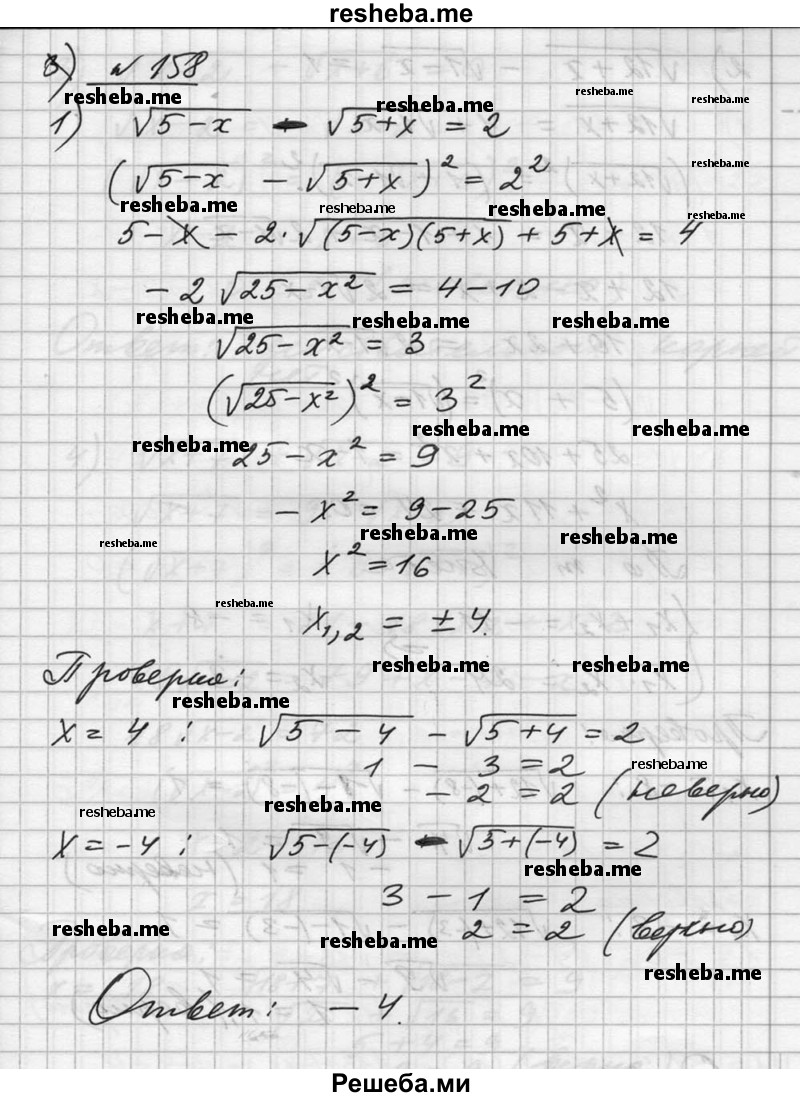 resheba.me
3) № 158
resheba.me resheba.me resheba.me resheba.me
1) √5-x - √5+x = 2
(√5-x - √5+x)² = 2²
resheba.me
resheba.me resheba.me resheba.me resheba.me
5-x - 2·√(5-x)(5+x) + 5+x = 4
-2√25-x² = 4-10
resheba.me resheba.me resheba.me
√25-x² = 3
(√25-x²)² = 3²
resheba.me resheba.me resheba.me
25-x² = 9
-x² = 9-25
resheba.me resheba.me resheba.me
x² = 16
resheba.me
x₁,₂ = ±4.
Проверка:
resheba.me resheba.me
resheba.me
x = 4 : √5-4 - √5+4 = 2
1 - 3 = 2
resheba.me
-2 = 2 (неверно)
resheba.me resheba.me
x = -4 : √5-(-4) - √5+(-4) = 2
resheba.me
3 - 1 = 2
2 = 2 (верно)
resheba.me resheba.me
resheba.me
Ответ: -4.
Решеба.ми